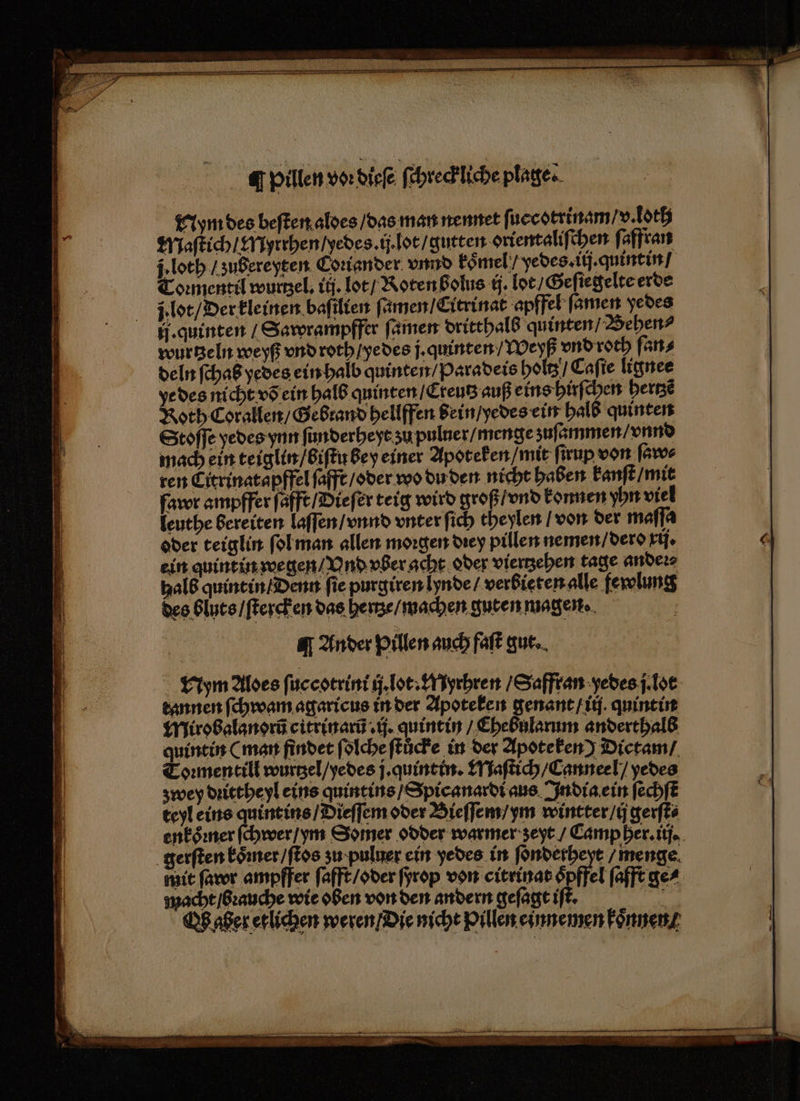 ¶ Pillen vor diese schreckliche plage.
Nym des besten aloes / das man nennet succotrinam / v. loth
Mastich / Myrrhen / yedes .ij. lot / gutten orientalischen saffran
j. loth / zubereyten Coriander vnnd kömel / yedes .iij. quintin /
Tormentil wurtzel. iij. lot / Roten bolus ij. lot / Gesiegelte erde
j. lot / Der kleinen basilien samen / Citrinat apffel samen yedes
ij. quinten / Sawrampffer samen dritthalb quinten / Behen⸗
wurtzeln weyß vnd roth / yedes j. quinten / Weyß vnd roth san⸗
deln schab yedes ein halb quinten / Paradeis holtz / Casie lignee
yedes nicht vō ein halb quinten / Creutz auß eins hirschen hertzē
Roth Corallen / Gebrand hellffen bein / yedes ein halb quinten
Stosse yedes ynn sunderheyt zu puluer / menge zusammen / vnnd
mach ein teiglin / bistu bey einer Apoteken / mit sirup von saw⸗
ren Citrinatapffel safft / oder wo du den nicht haben kanst / mit
sawr ampffer safft / Dieser teig wird groß / vnd konnen yhn viel
leuthe bereiten lassen / vnnd vnter sich theylen / von der massa
oder teiglin sol man allen morgen drey pillen nemen / dero xij.
ein quintin wegen / Vnd vber acht oder viertzehen tage ander⸗
halb quintin / Denn sie purgiren lynde / verbieten alle fewlung
des bluts / stercken das hertze / machen guten magen.
¶ Ander Pillen auch fast gut.
Nym Aloes succotrini ij. lot. Myrhren / Saffran yedes j. lot
tannen schwam agaricus in der Apoteken genant / iij. quintin
Mirobalanorū citrinarū .ij. quintin / Chebularum anderthalb
quintin (man findet solche stücke in der Apoteken) Dictam /
Tormentill wurtzel / yedes j. quintin. Mastich / Canneel / yedes
zwey drittheyl eins quintins / Spicanardi aus India ein sechst
teyl eins quintins / Diessem oder Biessem / ym wintter / ij gerst⸗
enkörner schwer / ym Somer odder warmer zeyt / Campher. iij.
gersten körner / stos zu puluer ein yedes in sonderheyt / menge
mit sawr ampffer safft / oder syrop von citrinat öpffel safft ge⸗
macht / brauche wie oben von den andern gesagt ist.
Ob aber etlichen weren / Die nicht Pillen einnemen können /